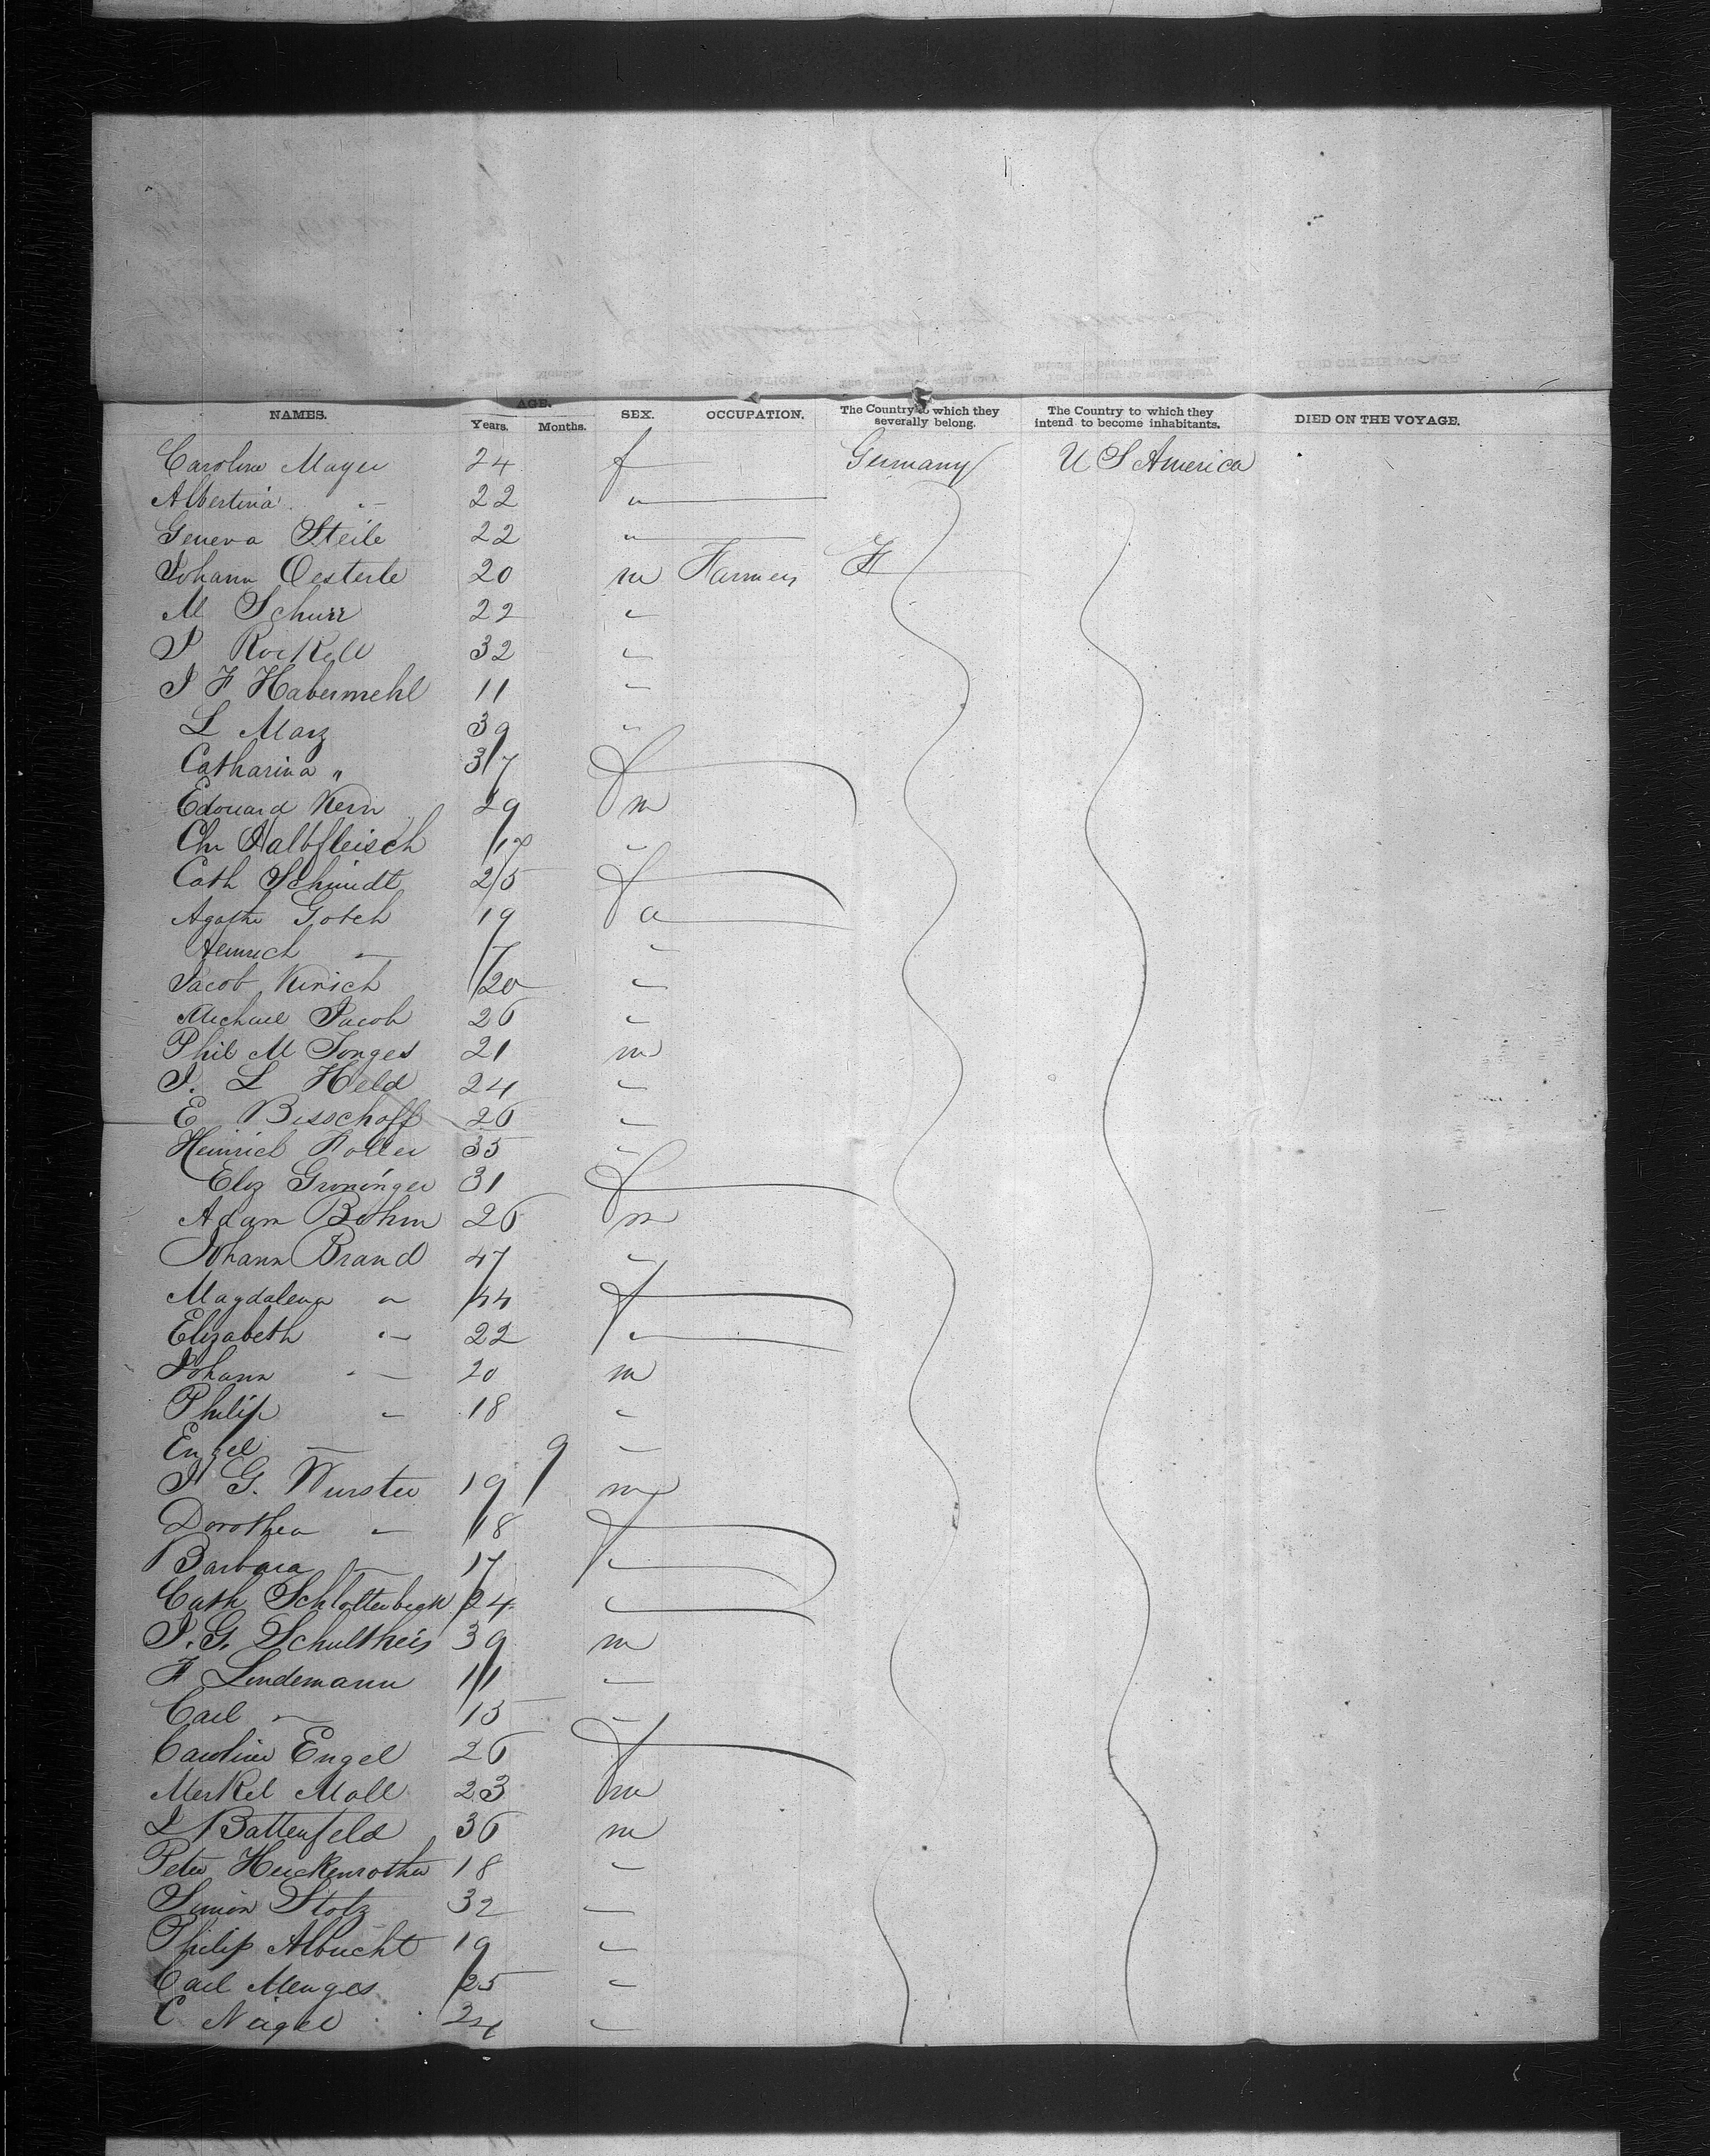 NAMES. AGE. Years. Months. SEX. OCCUPATION. The Country to which they severally belong. The Country to which they intend to become inhabitants. DIED ON THE VOYAGE.
Caroline Mayer 24 f Germany U S America
Albertina " 22 "
Geneva Steile 22 "
Johann Oesterle 20 m Farmer
M Schurr 22 "
J 32 "
J F Habermehl 11 "
L Marz 39 "
Catharina " 37 f
Edouard Kern 29 m
Chr Halbfleisch 17 "
Cath Schmidt 25 f
Agathe Gotch 19 "
Heinrich " 7 "
Jacob Kirsch 20 "
Michael Jacob 26 "
Phil M Jonges 21 m
J. L Held 24 "
E Bisschoff 26 "
Heinrich 35 "
Eliz Groninger 31 f
Adam Bohm 26 m
Johann Brand 47 "
Magdalena " 44 f
Elizabeth " 22 "
Johann " 20 m
Philip " 18 "
Engel " 9 "
J G. Wurster 19 m
Dorothea " 18 f
Barbara " 17 "
Cath Schlottenbeck 24 "
J. G. Schultheis 39 m
F Lindemann 11 "
Carl " 15 "
Caroline Engel 26 f
Merkel Moll 23 m
L Battenfeld 36 m
Peter Heickenrother 18 "
Simon Stotz 32 "
Philip Albucht 19 "
Carl Menges 25 "
C Nagel 24 "